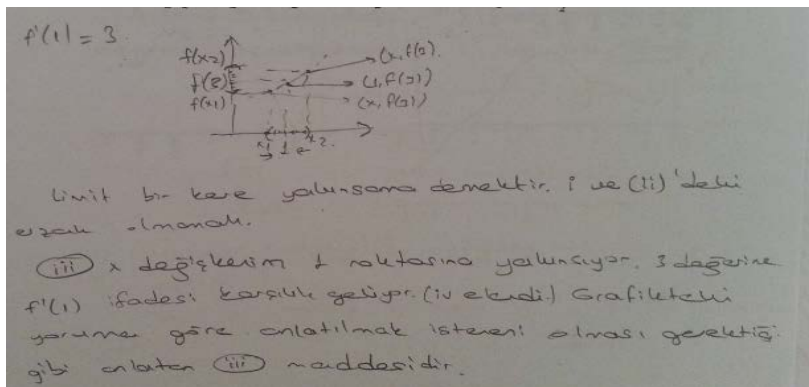 f'(1) = 3
f(x2)
(x, f(2).
f(3)
(1, f(1))
f(x1)
(x, f(1))
x1 1 x2
Limit bir kere yakınsama demektir. i ve (ii)'deki
olmamalı.
(iii) x değişkenim 1 noktasına yakınsıyor. 3 değerine
f'(1) ifadesi karşılık geliyor. (iv elendi.) Grafikteki
yoruma göre anlatılmak isteneni olması gerektiği
gibi anlatan (iii) maddesidir.